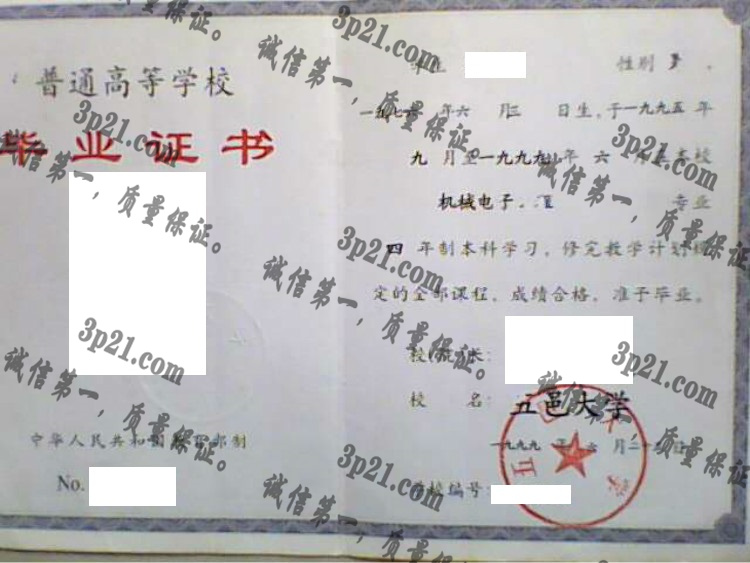 普通高等学校
毕业证书
中华人民共和国 制
No.
性别 男 ,
一九七 年六月 日生,于一九九五年
九月至一九九九年六月 校
机械电子 专业
四年制本科学习,修完教学计划规
定的全部课程,成绩合格,准予毕业。
校(院)长:
校 名: 五邑大学
一九九九年六月二十 日
学校编号:
3p21.com
诚信第一,质量保证。
3p21.com
诚信第一,质量保证。
3p21.com
诚信第一,质量保证。
3p21.com
诚信第一,质量保证。
3p21.com
诚信第一,质量保证。
3p21.com
诚信第一,质量保证。
3p21.com
诚信第一,质量保证。
3p21.com
诚信第一,质量保证。